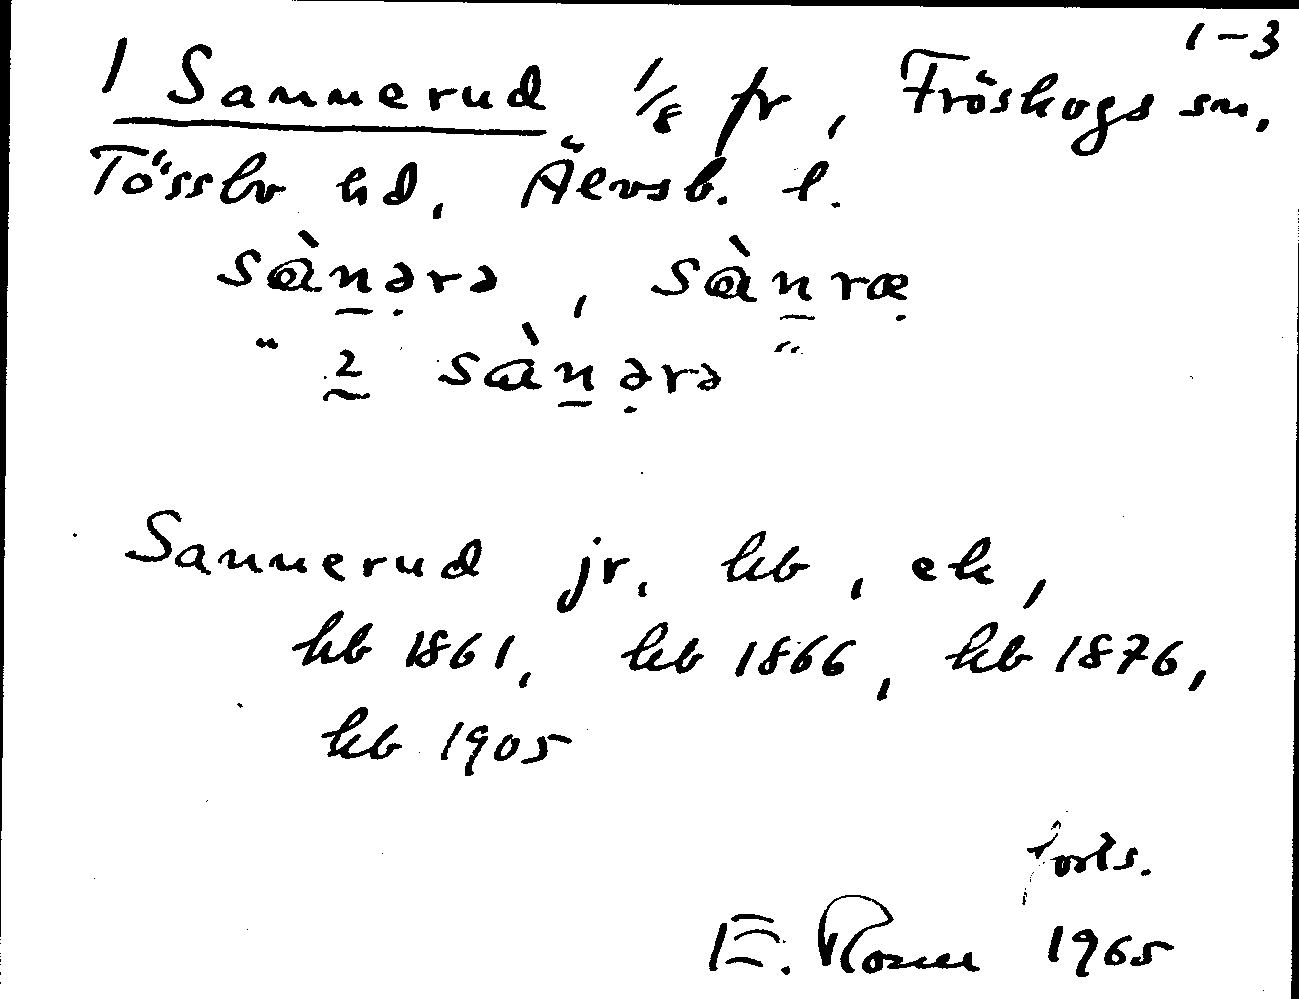 1-3
1 Sannerud 1/8 fr, Fröskogs sn,
Tössbo hd, Älvsb. l.
sàn̲ə̣rə, sàn̲ræ̣
" 2 sàn̲ə̣rə "
Sannerud jr, kb, ek,
kb 1861, kb 1866, kb 1876,
kb 1905
forts.
E. Rosell 1965